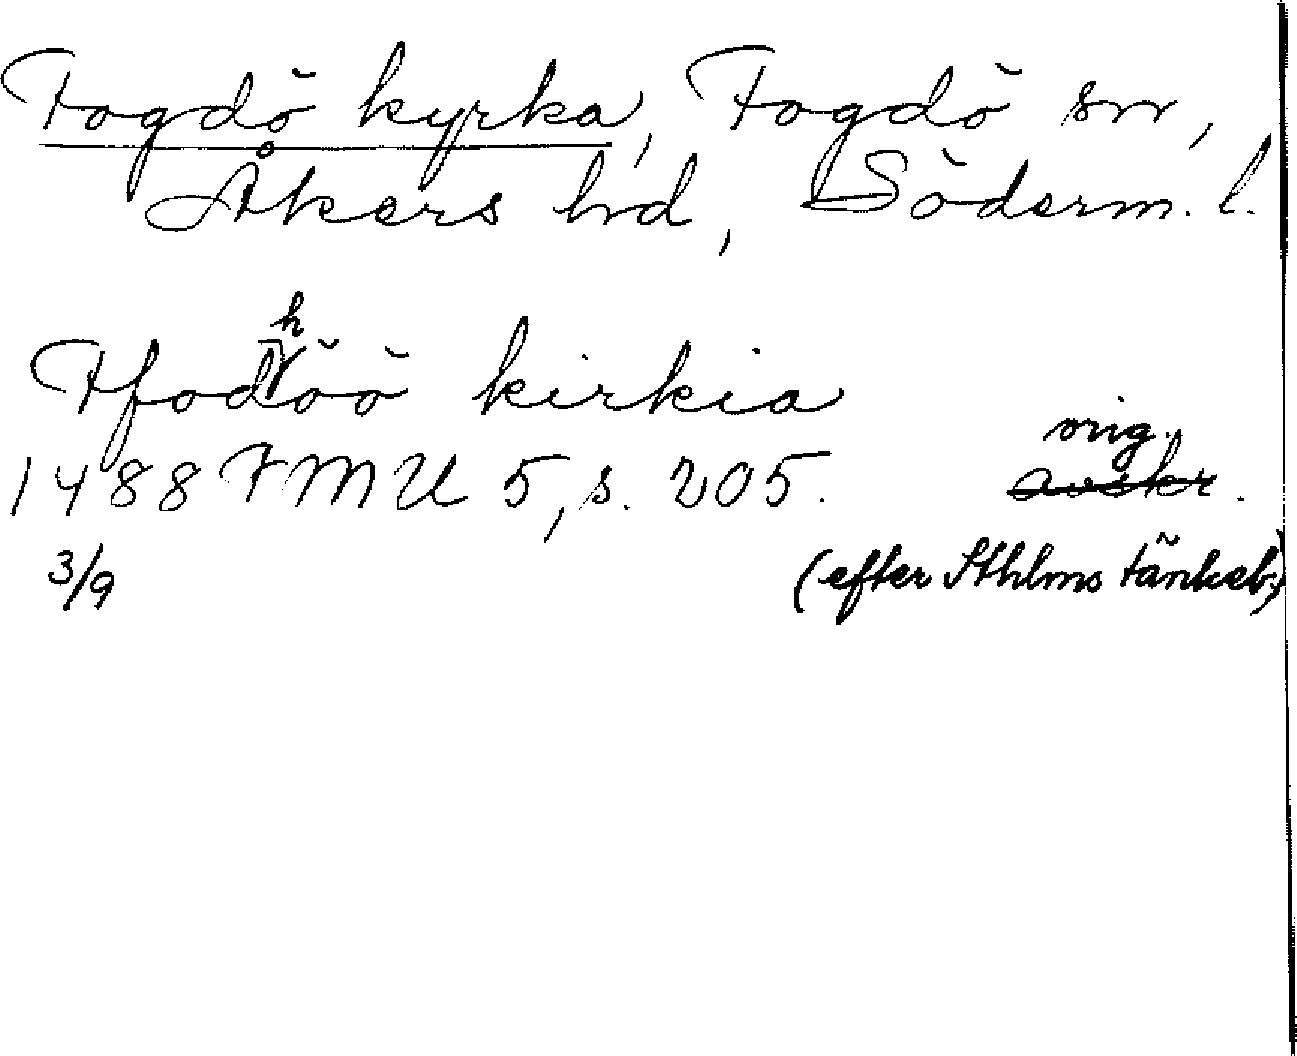 Fogdö kyrka, Fogdö sn,
Åkers hd, Söderm. l.
Ffodhöö kirkia
1488 FMU 5, s. 205. orig. avskr.
3/9 (efter Sthlms tänkeb.)